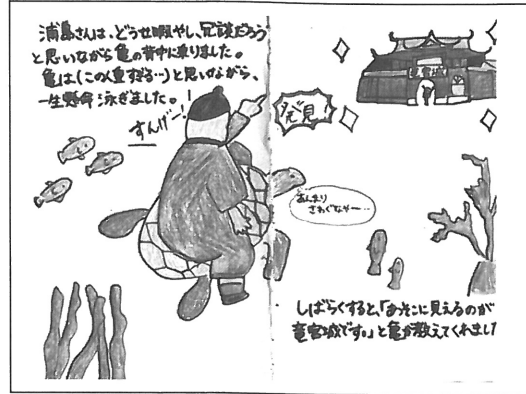 浦島さんは、どうせ暇やし、冗談だろう
と思いながら亀の背中に乗りました。
亀は(この人重すぎる…)と思いながら、
一生懸命泳ぎました。
すんげー!
発見
竜宮城
あんまり
さわぐなや…
しばらくすると、「あそこに見えるのが
竜宮城です。」と亀が教えてくれまし